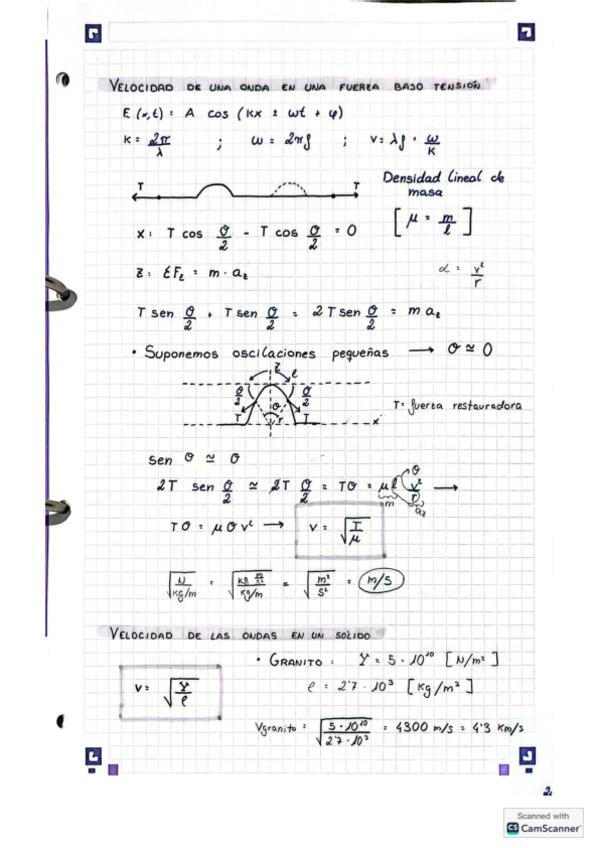 VELOCIDAD DE UNA ONDA EN UNA FUERZA BAJO TENSIÓN
E (x,t) = A cos (kx ± ωt + φ)
K = 2π/λ ; ω = 2πf ; v = λf = ω/K
T T
Densidad lineal de masa
[μ = m/l]
X: T cos θ/2 - T cos θ/2 = 0
Z: ΣFz = m · az
α = v²/r
T sen θ/2 + T sen θ/2 = 2T sen θ/2 = m az
• Suponemos oscilaciones pequeñas → θ ≃ 0
z l
θ/2 θ θ/2
T r T x
T = fuerza restauradora
sen θ ≃ θ
2T sen θ/2 ≃ 2T θ/2 = Tθ = μl v²/r →
θ m az
Tθ = μθv² → v = √T/μ
√N/kg/m = √kg m/s²/kg/m = √m²/s² = m/s
VELOCIDAD DE LAS ONDAS EN UN SOLIDO
• GRANITO: Y = 5 · 10¹⁰ [N/m²]
v = √Y/ρ
ρ = 2'7 · 10³ [kg/m³]
Vgranito = √5 · 10¹⁰/2'7 · 10³ = 4300 m/s = 4'3 Km/s
2.
Scanned with
CS CamScanner